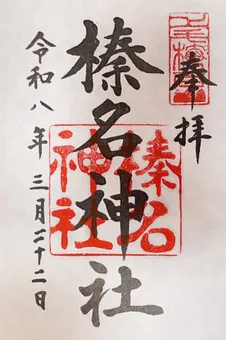 奉拝
榛名神社
榛名神社
令和八年三月二十二日